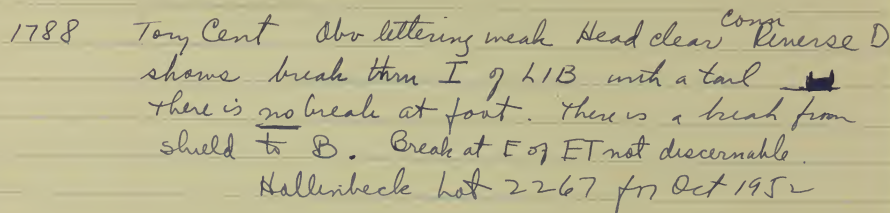 1788 Tory Cent Obv lettering weak Head clear Conn Reverse D
shows break thru I of LIB with a tail
there is no break at foot. There is a break from
shield to B. Break at E of ET not discernable.
Hollinbeck Lot 2267 for Oct 1952